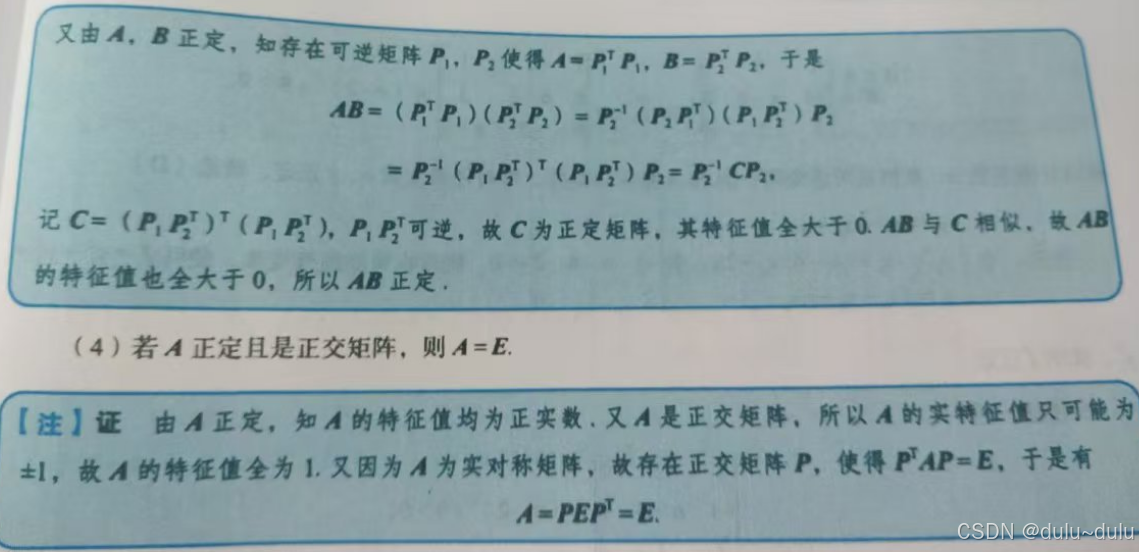 又由 A，B 正定，知存在可逆矩阵 P₁，P₂ 使得 A = P₁ᵀ P₁，B = P₂ᵀ P₂，于是
AB = (P₁ᵀ P₁)(P₂ᵀ P₂) = P₂⁻¹ (P₂ P₁ᵀ)(P₁ P₂ᵀ) P₂
= P₂⁻¹ (P₁ P₂ᵀ)ᵀ (P₁ P₂ᵀ) P₂ = P₂⁻¹ CP₂,
记 C = (P₁ P₂ᵀ)ᵀ (P₁ P₂ᵀ)，P₁ P₂ᵀ 可逆，故 C 为正定矩阵，其特征值全大于 0. AB 与 C 相似，故 AB
的特征值也全大于 0，所以 AB 正定.
（4）若 A 正定且是正交矩阵，则 A = E.
【注】证 由 A 正定，知 A 的特征值均为正实数. 又 A 是正交矩阵，所以 A 的实特征值只可能为
±1，故 A 的特征值全为 1. 又因为 A 为实对称矩阵，故存在正交矩阵 P，使得 PᵀAP = E，于是有
A = PEPᵀ = E.
CSDN @dulu~dulu